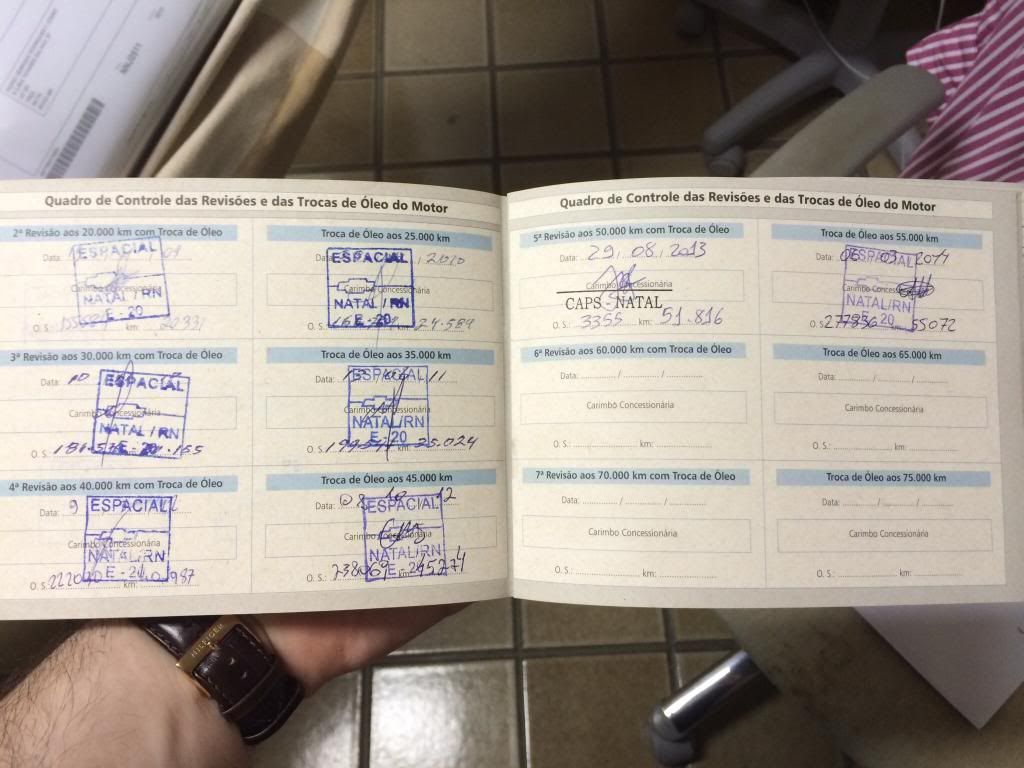 NNL0911
Quadro de Controle das Revisões e das Trocas de Óleo do Motor
2ª Revisão aos 20.000 km com Troca de Óleo
Data:
ESPACIAL
Carimbo Concessionária
NATAL / RN
E - 20
O. S.: km: 20331
Troca de Óleo aos 25.000 km
Data: 2010
ESPACIAL
Carimbo Concessionária
NATAL / RN
E - 20
O. S.: km: 24.589
3ª Revisão aos 30.000 km com Troca de Óleo
Data: 10
ESPACIAL
Carimbo Concessionária
NATAL / RN
E - 20
O. S.:
Troca de Óleo aos 35.000 km
Data: 11
ESPACIAL
Carimbo Concessionária
NATAL/RN
E - 20
O. S.: 35.024
4ª Revisão aos 40.000 km com Troca de Óleo
Data: 9
ESPACIAL
Carimbo Concessionária
NATAL/RN
O. S.: km: 987
Troca de Óleo aos 45.000 km
Data: 08 10 12
ESPACIAL
NATAL/RN
O. S.: 238069 km: 45274
Quadro de Controle das Revisões e das Trocas de Óleo do Motor
5ª Revisão aos 50.000 km com Troca de Óleo
Data: 29.08.2013
Carimbo Concessionária
CAPS - NATAL
O. S.: 3355 km: 51.816
Troca de Óleo aos 55.000 km
Data: 03
ESPACIAL
Carimbo Concessionária
NATAL/RN
O. S. 277836 55072
6ª Revisão aos 60.000 km com Troca de Óleo
Data: / /
Carimbo Concessionária
O. S.: km:
Troca de Óleo aos 65.000 km
Data: / /
Carimbo Concessionária
O. S.: km:
7ª Revisão aos 70.000 km com Troca de Óleo
Data: / /
Carimbo Concessionária
O. S.: km:
Troca de Óleo aos 75.000 km
Data: / /
Carimbo Concessionária
O. S.: km:
HILFIGER